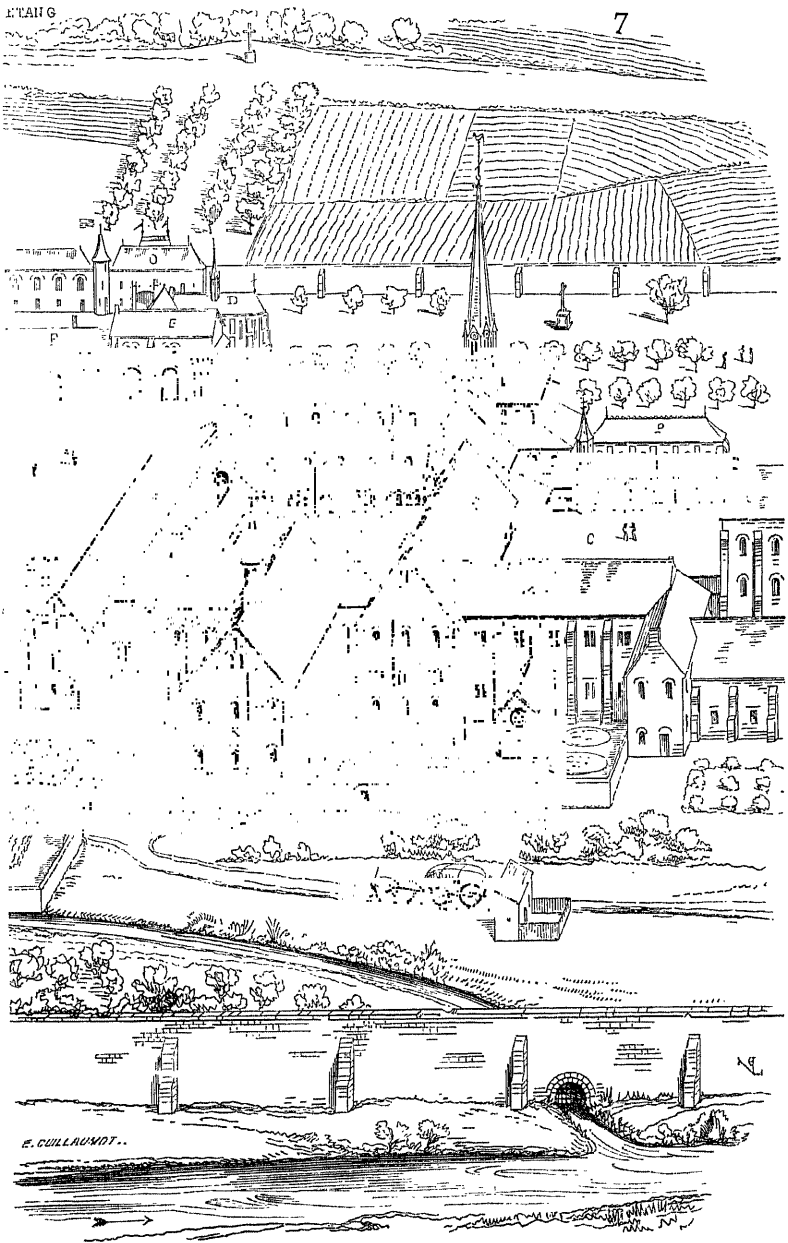 ETANG
7
O
D
E
F
P
C
E. GUILLAUMOT..